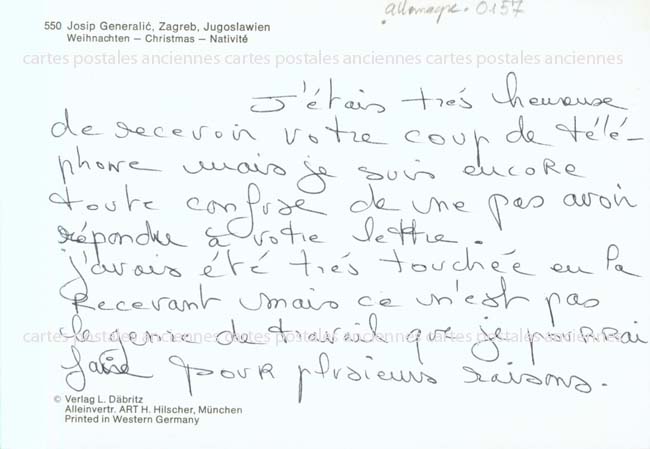 allemagne. 0157
550 Josip Generalić, Zagreb, Jugoslawien
Weihnachten – Christmas – Nativité
cartes postales anciennes cartes postales anciennes cartes postales anciennes
J'étais très heureuse
de recevoir votre coup de télé-
phone mais je suis encore
toute confuse de ne pas avoir
répondu à votre lettre.
j'avais été très touchée en la
Recevant mais ce n'est pas
cartes postales anciennes cartes postales anciennes cartes postales anciennes
le genre de travail que je pourrai
faire pour plusieurs raisons.
© Verlag L. Däbritz
Alleinvertr. ART H. Hilscher, München
Printed in Western Germany